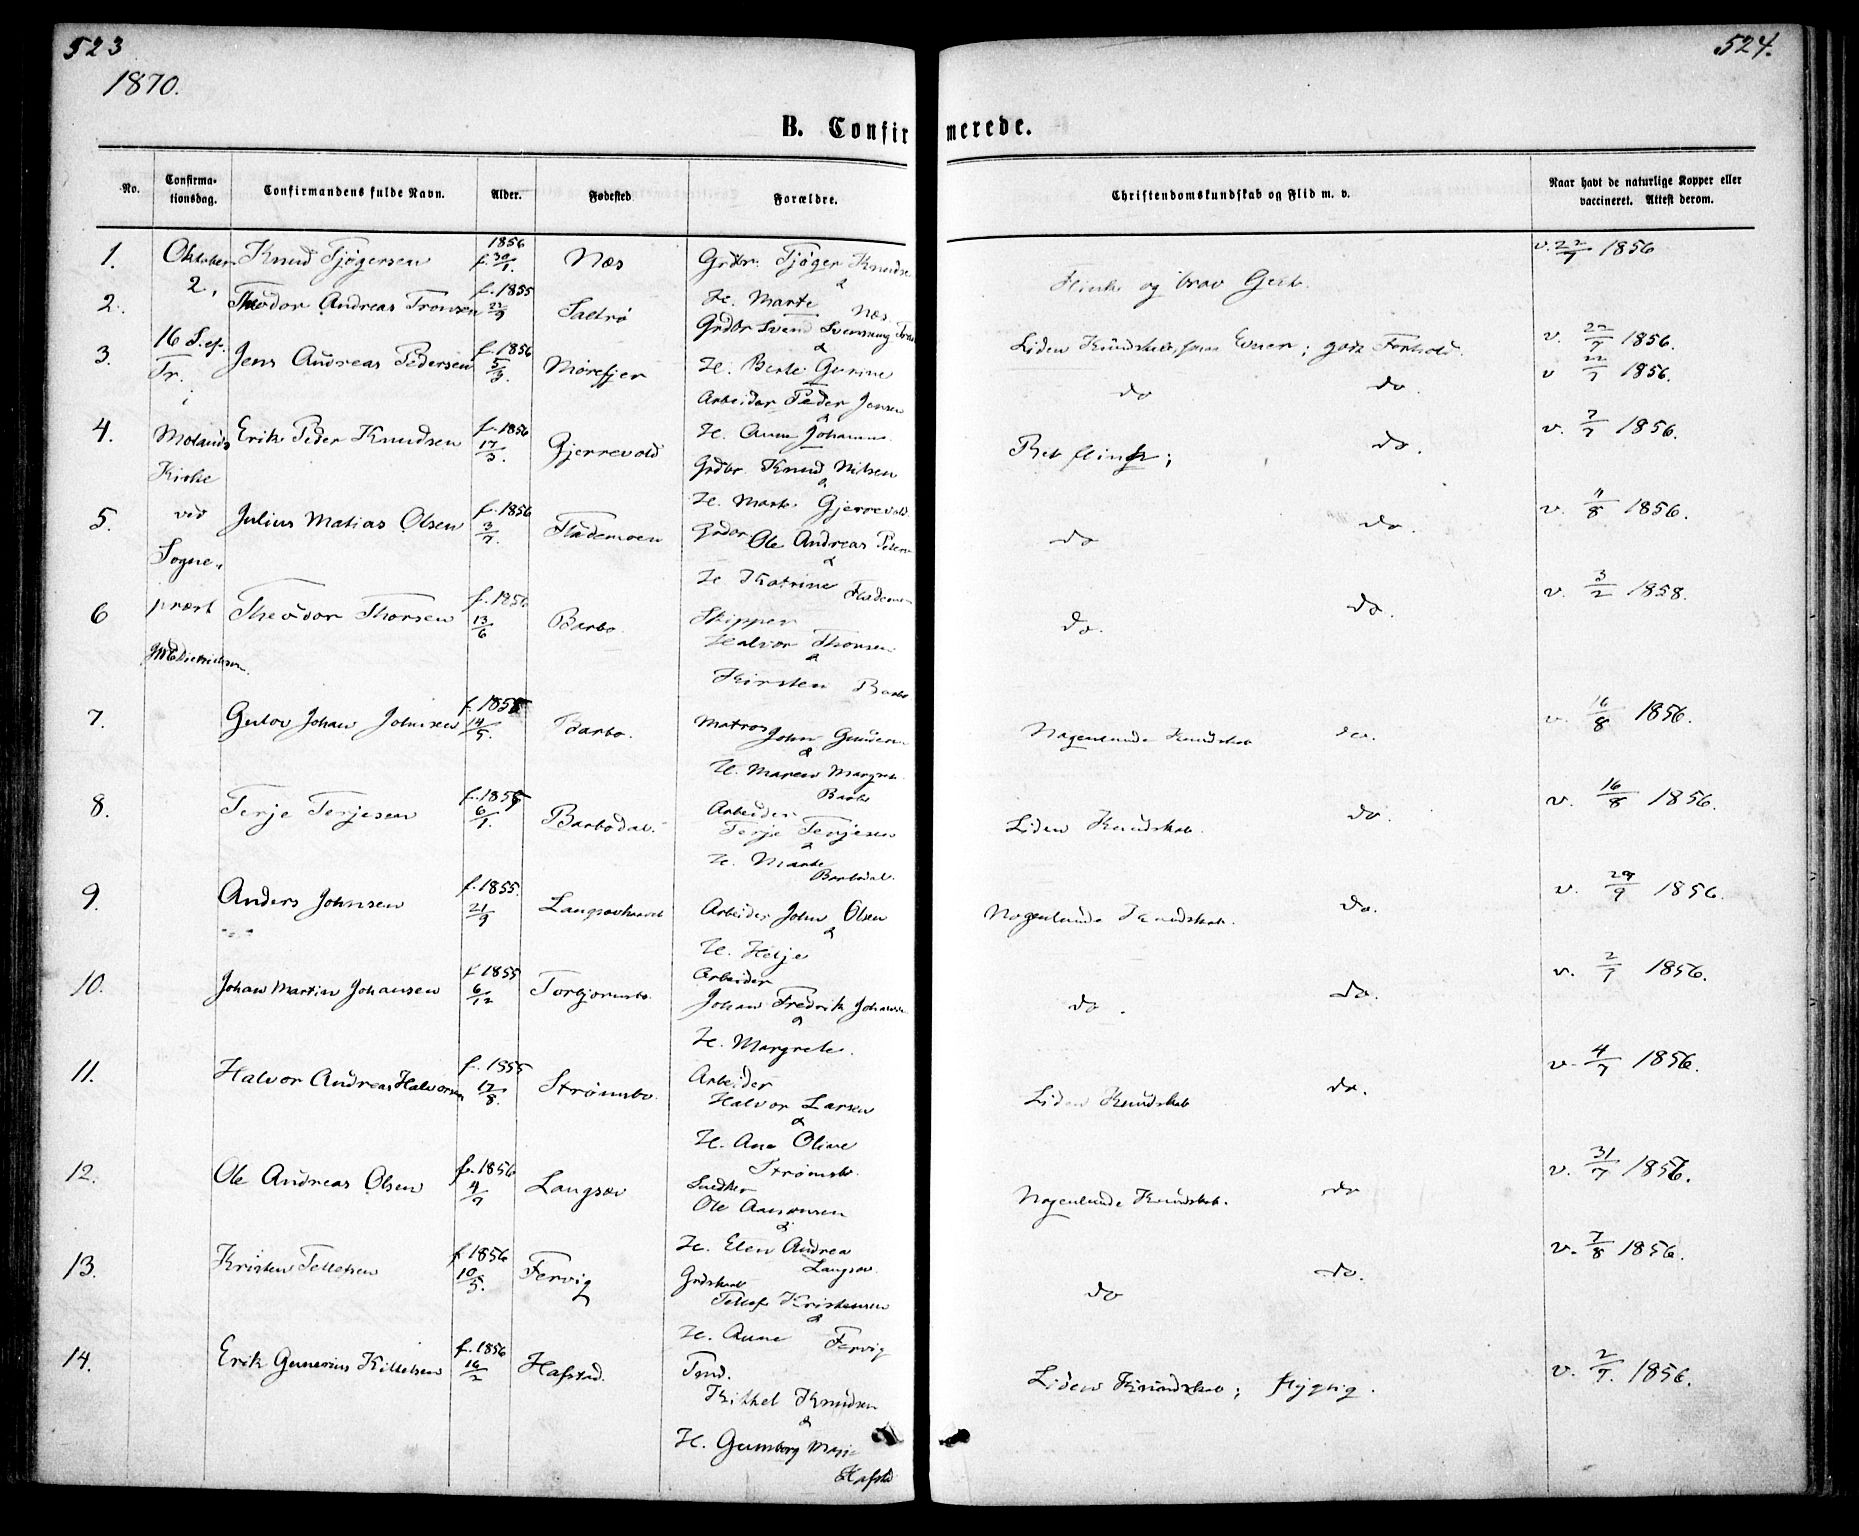 523
524.
1870.
B. Confirmerede.
No.
Confirma-
tionsdag.
Confirmandens fulde Navn.
Alder.
Fødested.
Forældre.
Christendomskundskab og Flid m. v.
Naar havt de naturlige Kopper eller
vaccineret. Attest derom.
Oktober
2,
16 S. ef.
Tr.
i
Molands
Kirke
ved
Sogne-
præst
1. Knud Tjøgersen f. 1856 30/1. Næs
Grdbr. Tjøger
&
H. Marte Næs
og brav Gut. v. 22/7 1856
2. Theodor Andreas f. 1855 Saltrø
Grdbr Svend
&
H. Gurine
Liden Kundskab, Evner; godt Forhold. v. 22/7 1856.
3. Jens Andreas Pedersen f. 1856 5/3. Mørefjer
Arbeider Peder Jensen
&
H. Anne
do do. v 22/7 1856.
4. Erik Peder Knudsen f. 1856 17/3. Gjerrevold
Grdbr. Knud Nilsen
&
H. Marte Gjerrevold
do. v. 7/7 1856.
5. Julius Matias Olsen f. 1856 3/7. Flademoen
Grdbr Ole Andreas
&
H. Katrine
do do. v. 11/8 1856.
6 Theodor Thorsen 13/6 Barbo.
Skipper
Halvor Thorsen
&
Kirsten Barbo
do. do. v. 3/2 1858.
7. Gustav Johan Johnsen 14/5. Barbo.
Matros John
&
H. Maren Margrete
Barbo
Nogenlunde Kundskab do. v. 16/8 1856.
8. Terje Terjesen 6/1. Barbodal.
Arbeider
Terje Terjesen
&
H. Marte
Barbodal.
Liden Kundskab. do. v. 16/8 1856.
9. Anders Johnsen f. 1855. 21/9
Arbeider John Olsen
&
H. Helje
Nogenlunde Kundskab. do. v. 29/9 1856.
10. Johan Martin Johansen f 1855 6/12 Torbjørnsbo.
Arbeider
Johan Fredrik Johansen
&
H. Margrete.
do. do. v. 2/7 1856.
11. Halvor Andreas Halvorsen f. 1855 17/8. Strømsbo.
Arbeider
Halvor Larsen
&
H. Ane Oline
Strømsbo.
Liden Kundskab do. v. 4/7 1856.
12. Ole Andreas Olsen f. 1856 4/7 Langsæv
Snedker
Ole
&
H. Elen Andrea
Langsæv.
Nogenlunde Kundskab. do v. 31/7 1856.
13. Kristen Tellefsen f 1856 10/5. Fervig
Tellef Kristensen
&
H. Anne Fervig
do do. v. 7/8 1856.
14. Erik Gunerius Kittelsen f. 1856 16/2 Hafstad.
Tmd.
Kittel Knudsen
&
H. Gumborg
Hafstad
Liden Kundskab; flygtig. v. 2/7. 1856.